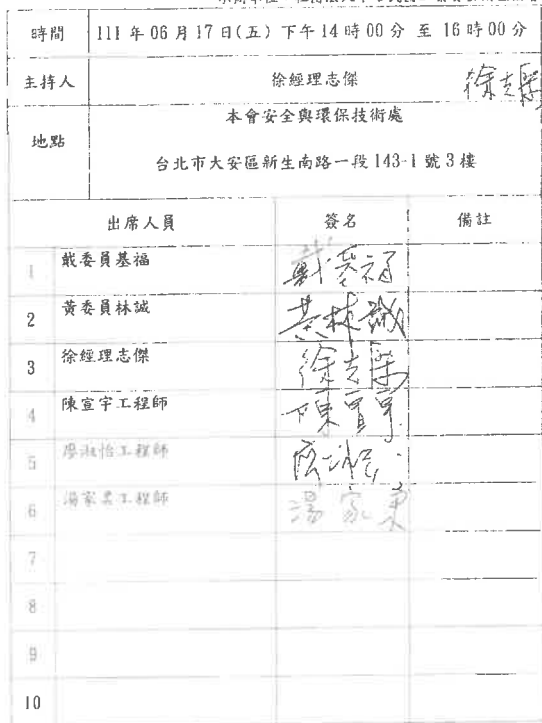 時間 111 年 06 月 17 日(五) 下午 14 時 00 分 至 16 時 00 分
主持人 徐經理志傑 徐志傑
地點 本會安全與環保技術處
台北市大安區新生南路一段 143-1 號 3 樓
出席人員 簽名 備註
1 戴委員基福 戴基福
2 黃委員林誠 黃林誠
3 徐經理志傑 徐志傑
4 陳宣宇工程師 陳宣宇
5 廖淑怡工程師
6 湯家柔工程師 湯家柔
7
8
9
10